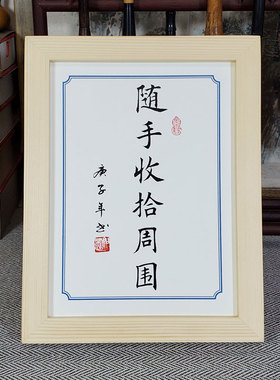 随手收拾周围
庚子年书